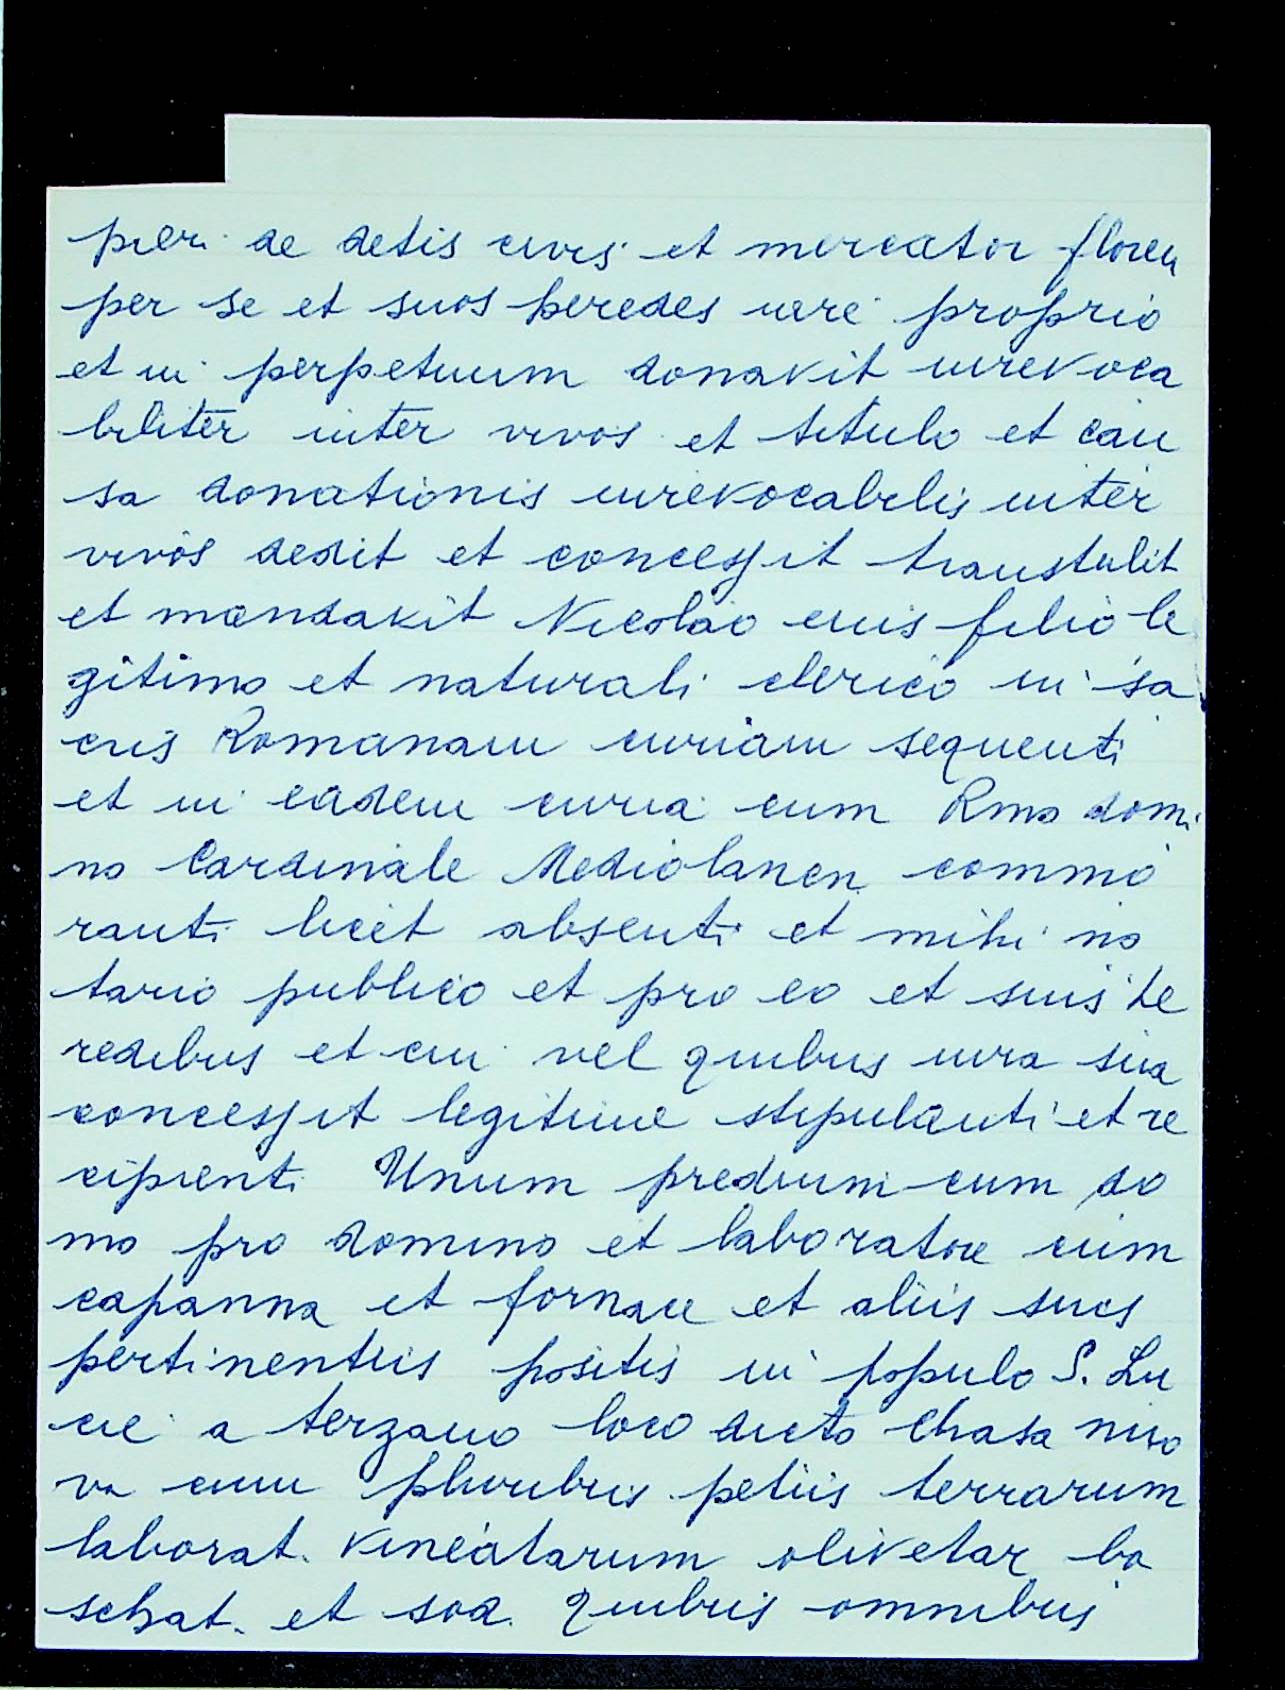 pieri de detis civis et mercator floren
per se et suos heredes iure proprio
et in perpetuum donavit inrevoca
biliter inter vivos et titulo et cau
sa donationis inrevocabilis inter
vivos dedit et concessit transtulit
et mandavit Nicolao eius filio le
gitimo et naturali clerico in sa
cris Romanam curiam sequenti
et in eadem curia cum Rmo domi
no Cardinale Mediolanen commo
ranti licet absenti et mihi no
tario publico et pro eo et suis he
redibus et cui vel quibus iura sua
concessit legitime stipulanti et re
cipienti Unum predium cum do
mo pro domino et laboratore cum
capanna et fornace et aliis suis
pertinentiis positis in populo S. Lu
cie a terzano loco dicto Chasa nuo
va cum pluribus petiis terrarum
laborat. vineatarum olivetar bo
schat. et sod. quibus omnibus